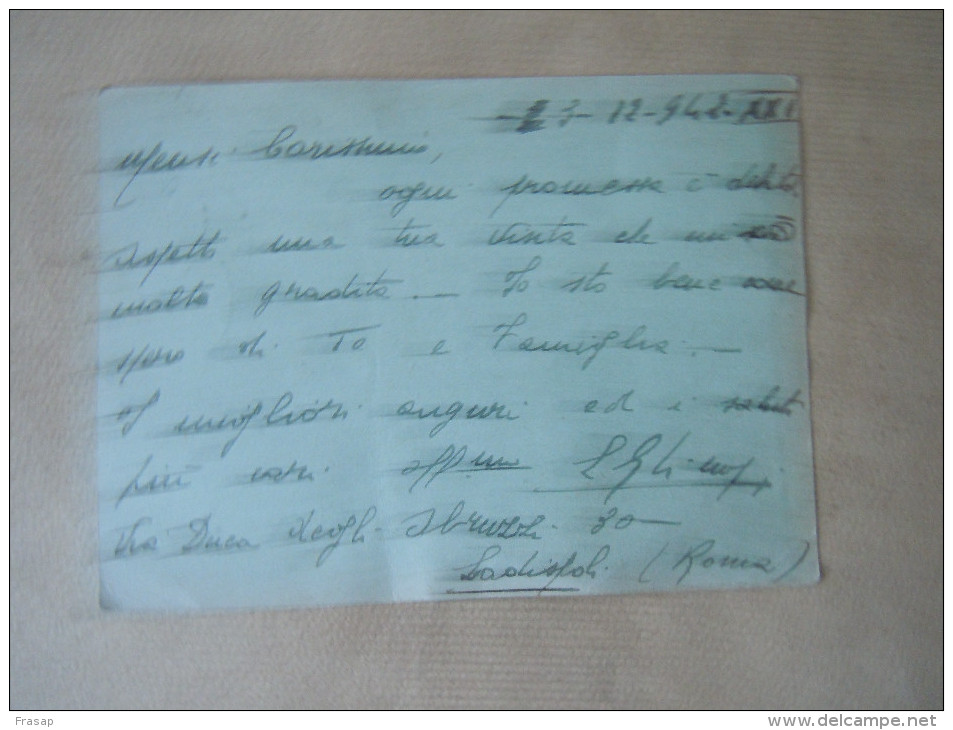 23-12-942-XXI
Carissimo,
ogni promessa è debito.
Aspetto una tua visita che mi sarà
molto gradita — Io sto bene come
spero di Te e Famiglia. —
I migliori auguri ed i saluti
più cari aff.mo
Via Duca degli Abruzzi 30 —
Ladispoli (Roma)
Frasap
www.delcampe.net